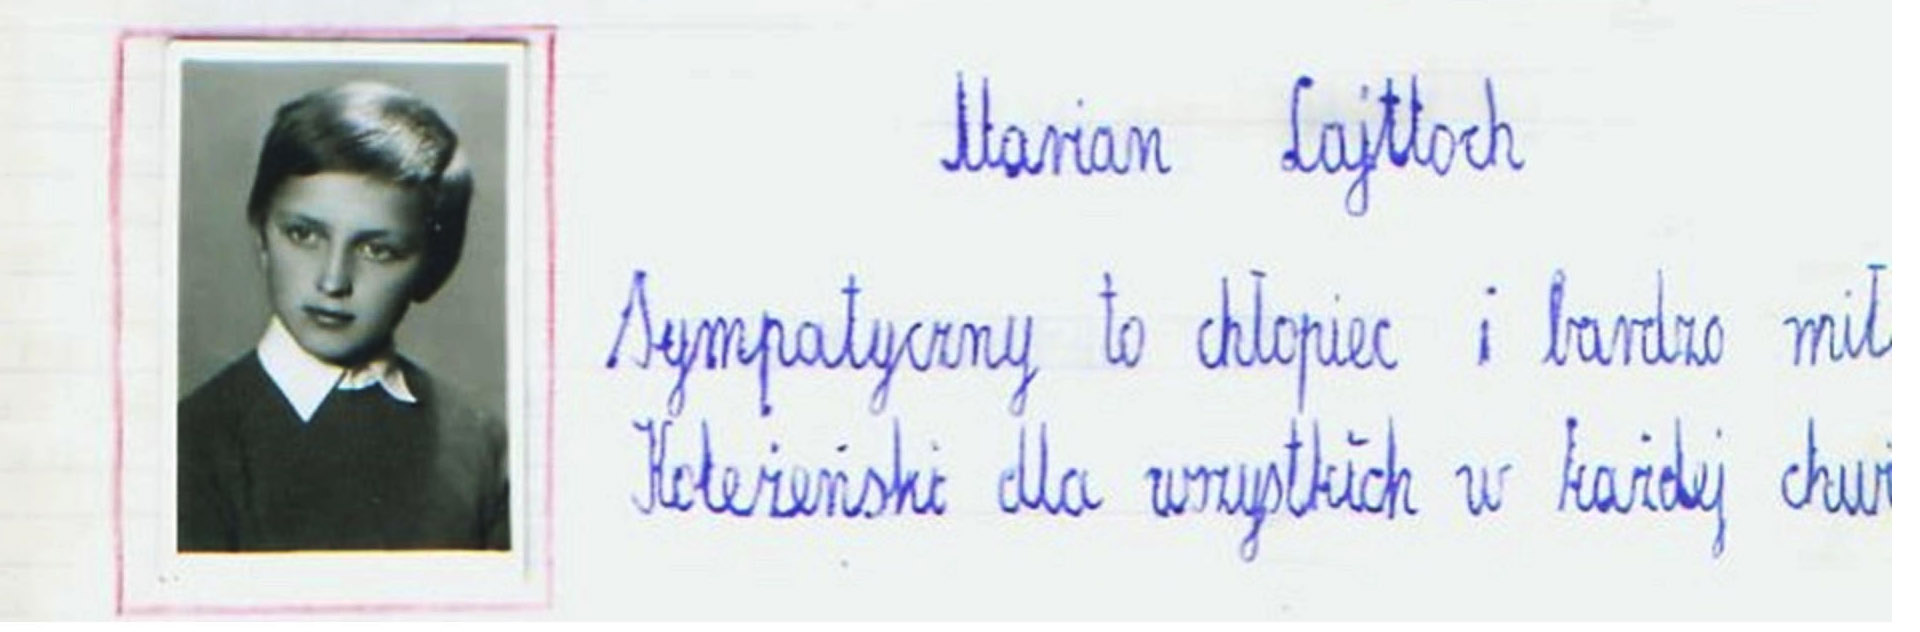 Marian Lajtloch
Sympatyczny to chłopiec i bardzo mił
Koleżeński dla wszystkich w każdej chwi